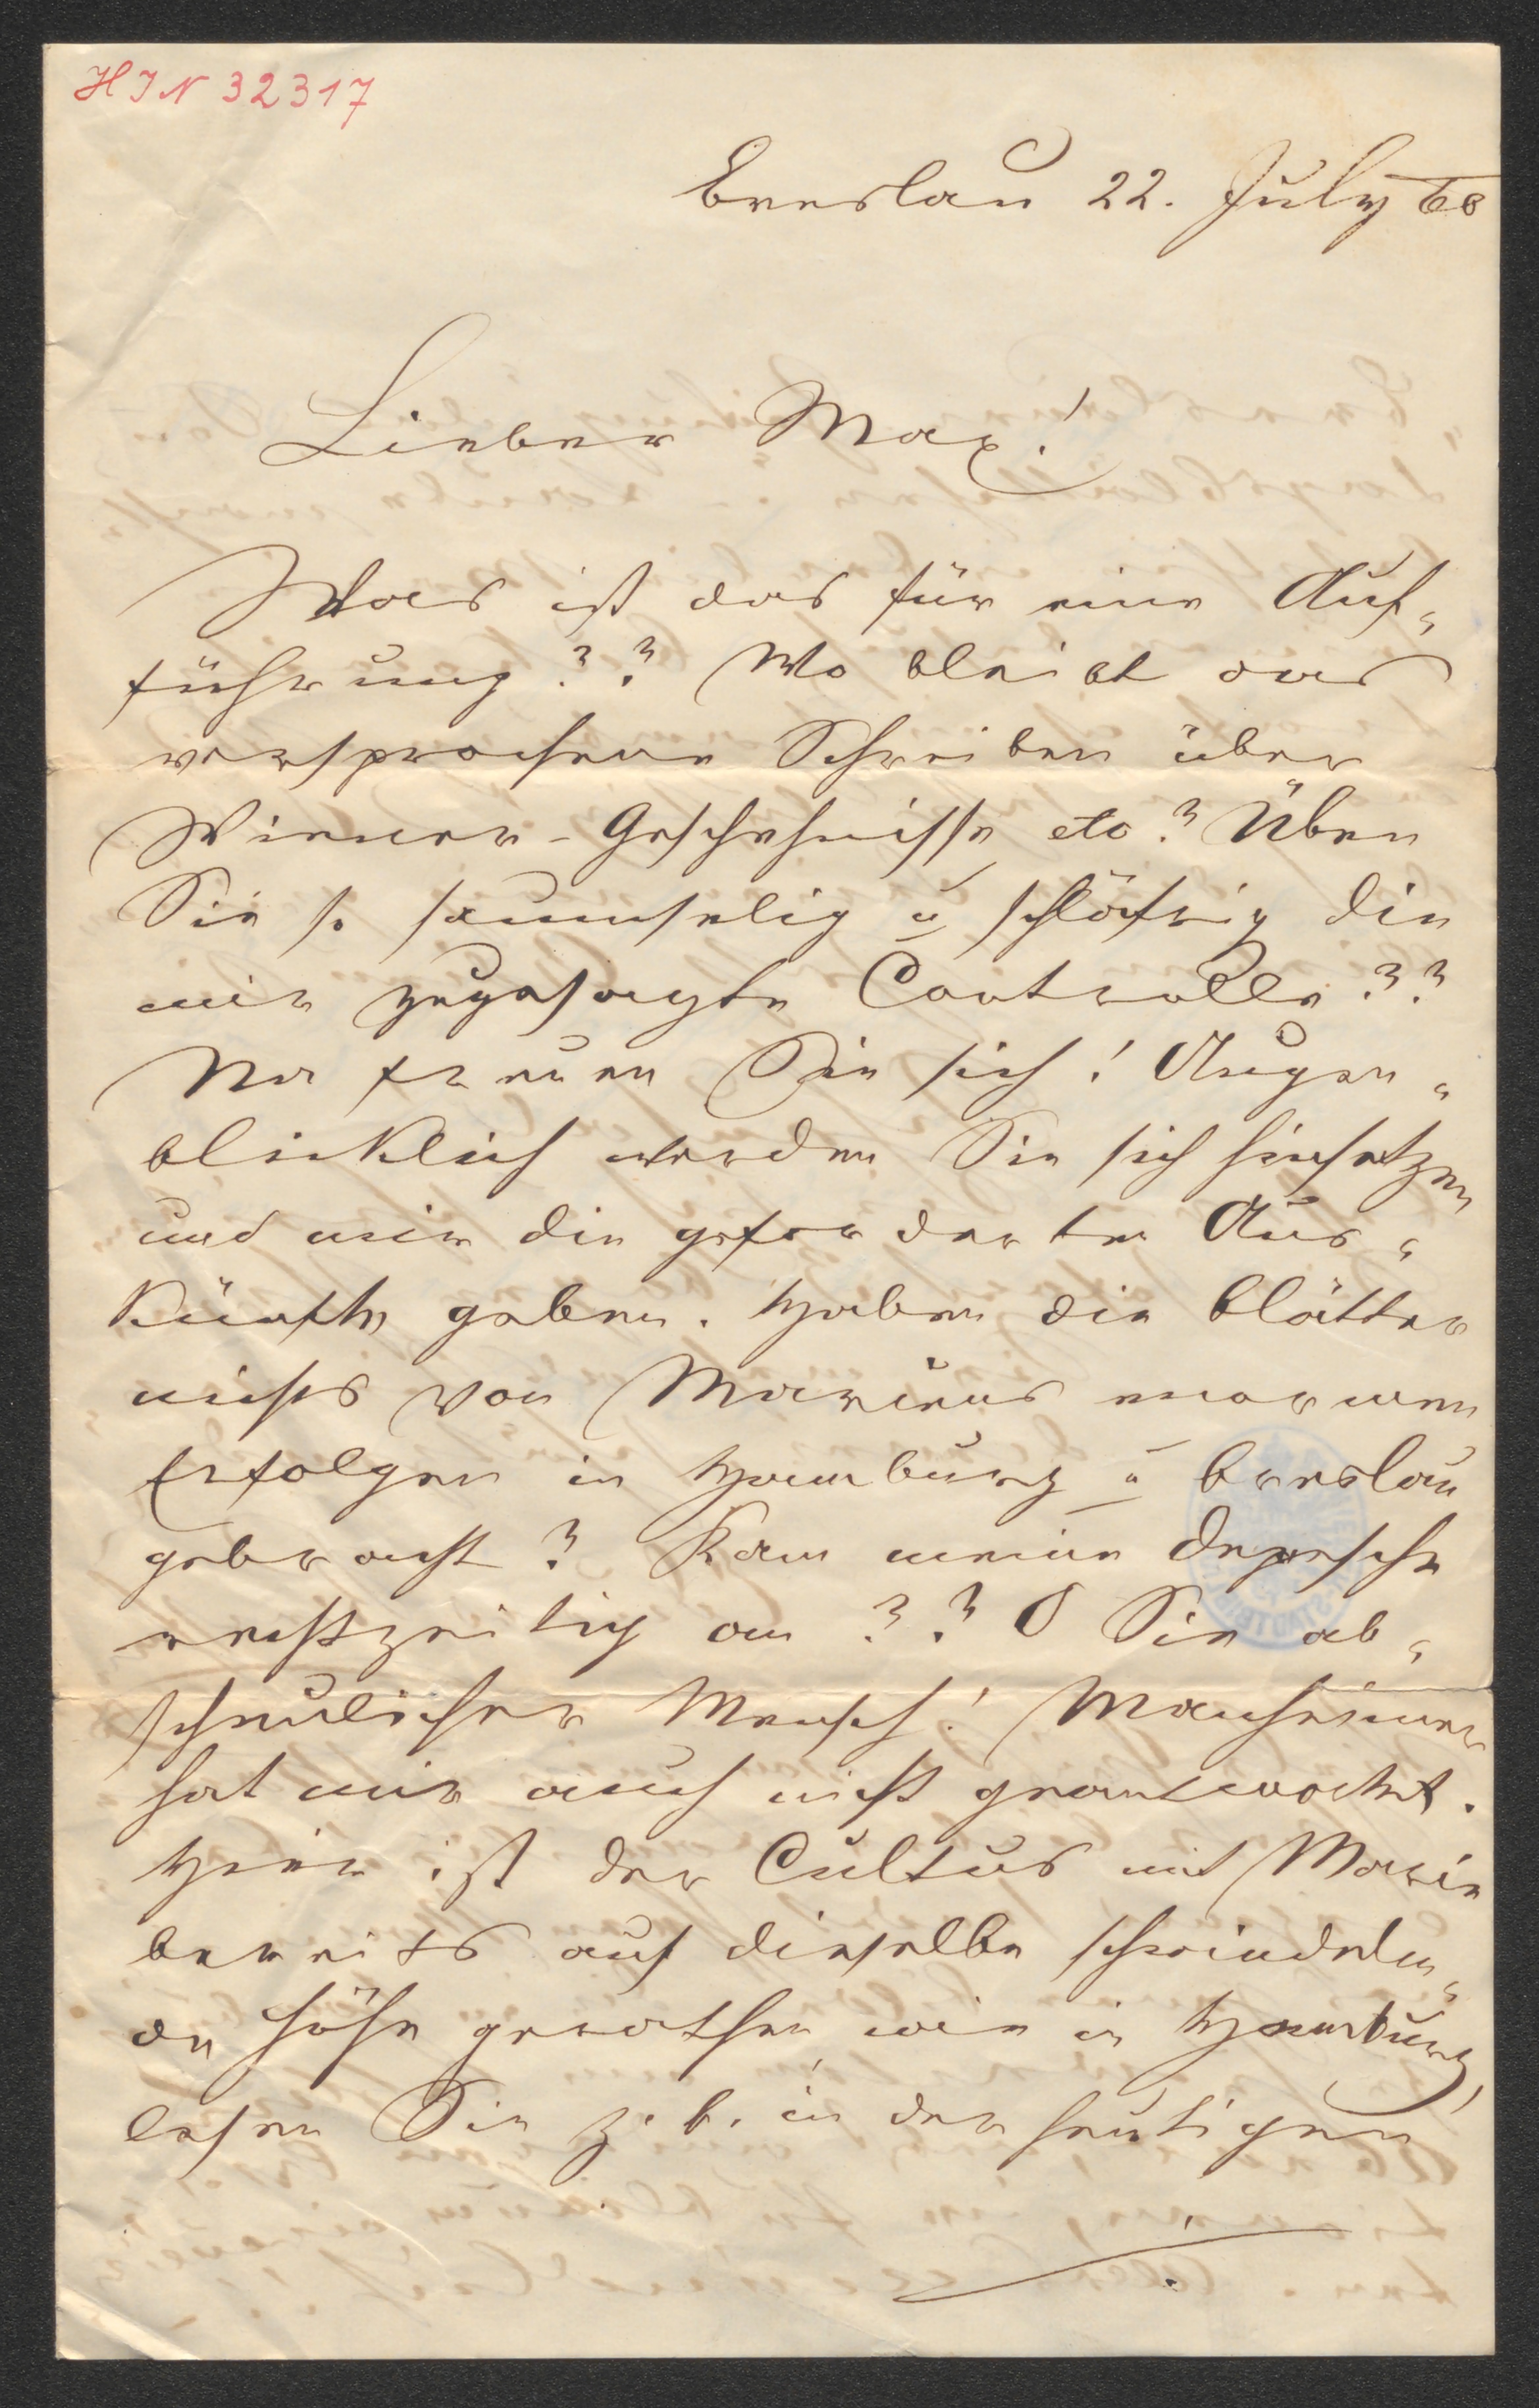 HIN 32317
Breslau 22. July 68
Lieber Max!
Was ist das für eine Auf-
führung?? Wo bleibt das
versprochene Schreiben über
Wiener-Geschehnisse etc? Üben
Sie so saumselig u schläfrig die
mir zugesagte Controlle??
Na freuen Sie sich! Augen-
blicklich werden Sie sich hinsetzen
und mir die geforderten Aus-
künfte geben. Haben die Blätter
nichts von Mariens enormen
Erfolgen in Hamburg u Breslau
gebracht? Kam meine Depesche
rechtzeitig an?? O Sie ab-
scheulicher Mensch! Manheimer
hat mir auch nicht geantwortet.
Hier ist der Cultus mit Marie
bereits auf dieselbe schwindeln-
de Höhe gerathen wie in Hamburg,
lesen Sie z. b. in der heutigen